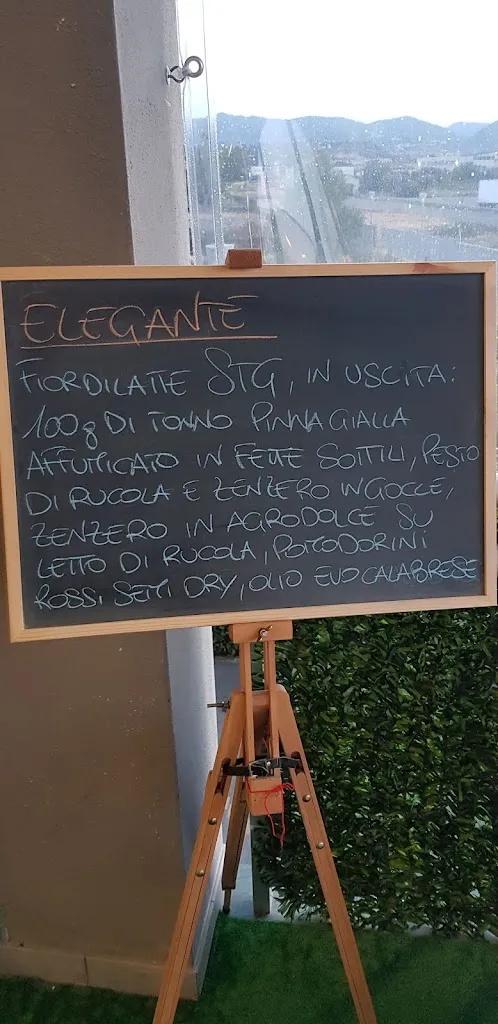 ELEGANTE
FIORDILATTE STG, IN USCITA:
100g DI TONNO PINNA GIALLA
AFFUMICATO IN FETTE SOTTILI, PESTO
DI RUCOLA E ZENZERO IN GOCCE,
ZENZERO IN AGRODOLCE SU
LETTO DI RUCOLA, POMODORINI
ROSSI SEMI DRY, OLIO EVO CALABRESE